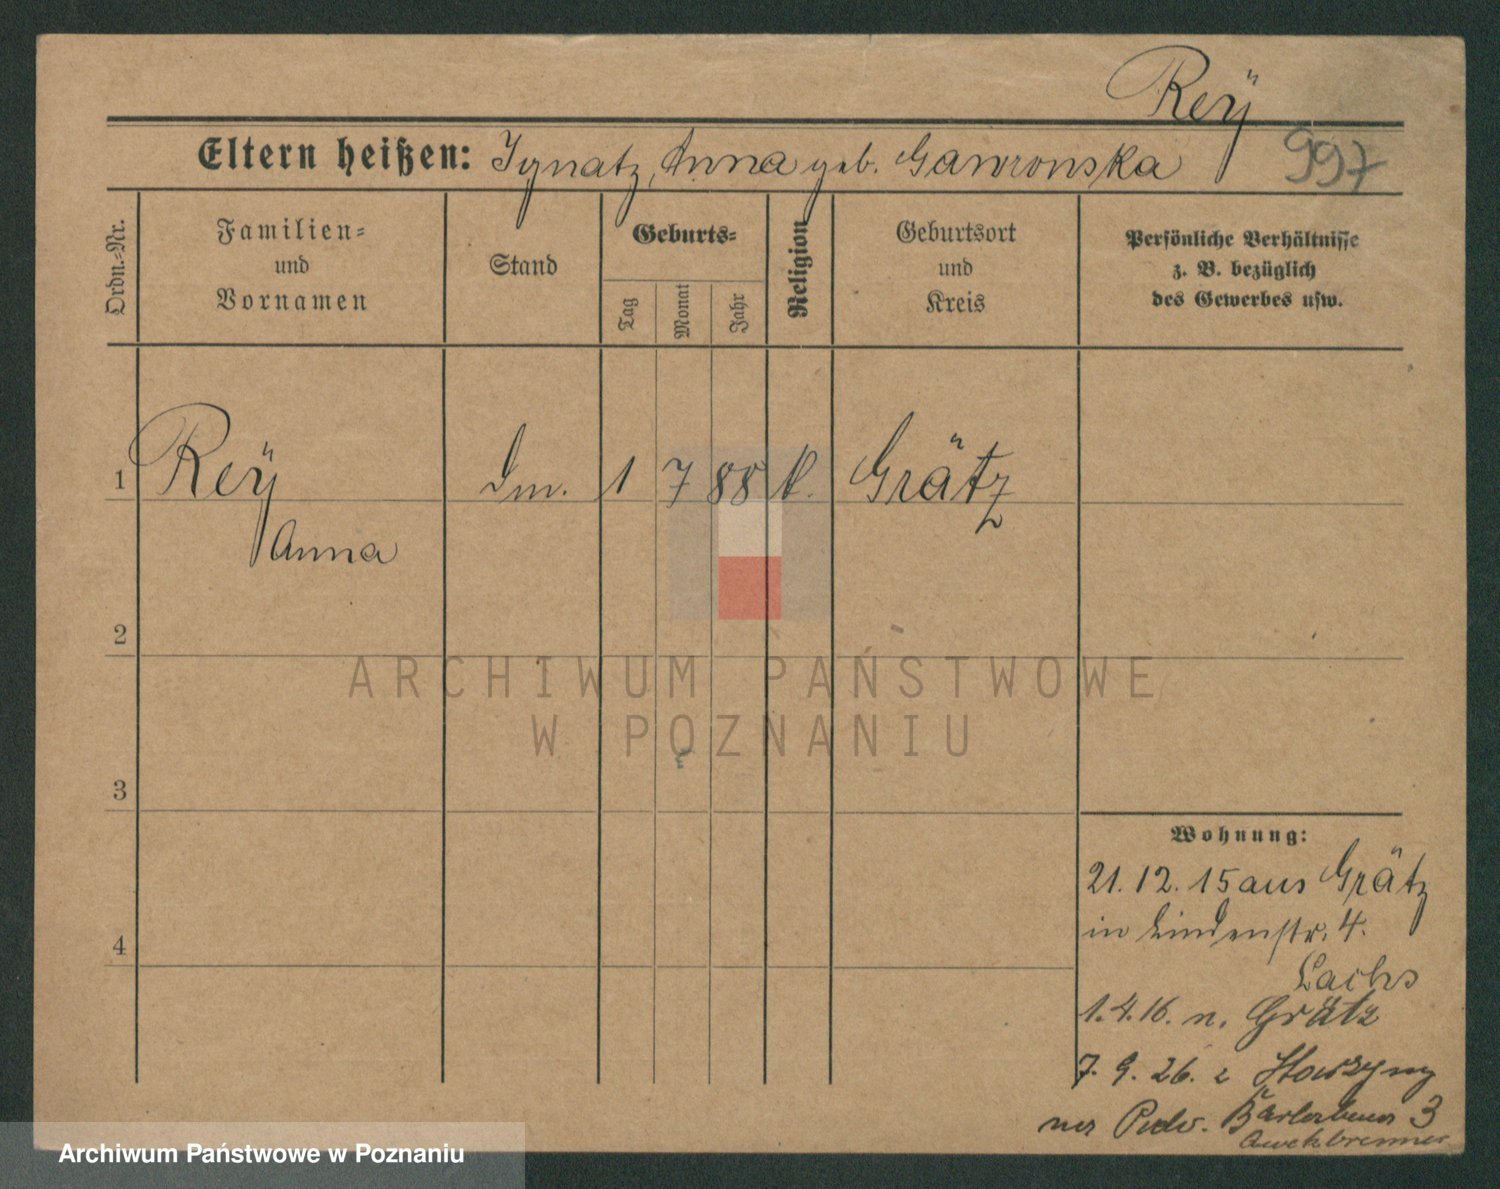 Reÿ
997
Eltern heißen: Ignatz, Anna geb. Gawronska
Ordn.-Nr.
Familien-
und
Vornamen
Stand
Geburts-
Tag
Monat
Jahr
Religion
Geburtsort
und
Kreis
Persönliche Verhältnisse
z. B. bezüglich
des Gewerbes usw.
1 Reÿ 1 7 88 k. Grätz
Anna
2
3
4
ARCHIWUM PAŃSTWOWE
W POZNANIU
Wohnung:
21. 12. 15 aus Grätz
in Lindenstr. 4.
Lachs
1.4.16. n. Grätz
7. 9. 26. z
3
Archiwum Państwowe w Poznaniu